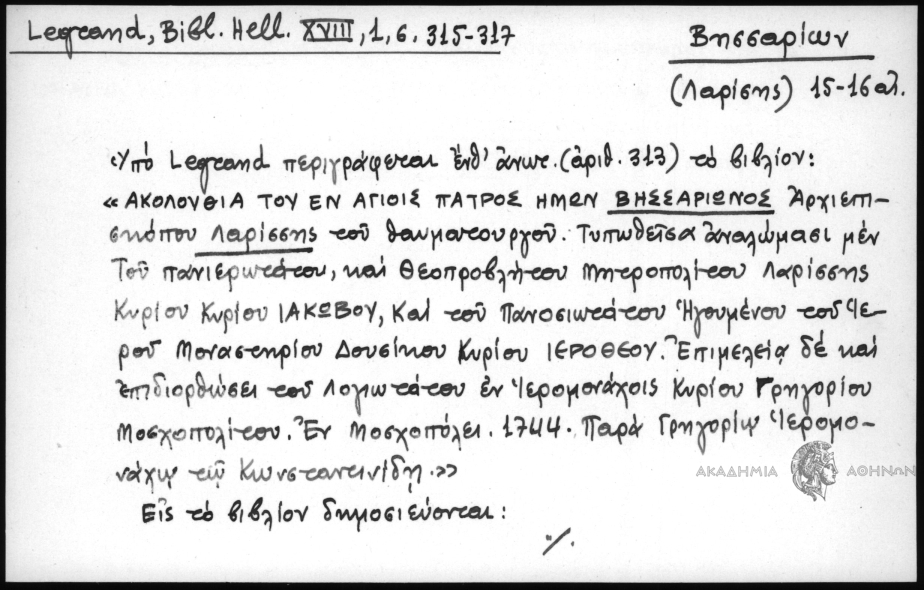 Legrand, Bibl. Hell. XVIII, 1, 6. 315-317
Βησσαρίων
(Λαρίσης) 15-16 αι.
Ὑπό Legrand περιγράφεται ἔνθ' ἄνωτ. (ἀριθ. 313) τό βιβλίον:
«ΑΚΟΛΟΥΘΙΑ ΤΟΥ ΕΝ ΑΓΙΟΙΣ ΠΑΤΡΟΣ ΗΜΩΝ ΒΗΣΣΑΡΙΩΝΟΣ Ἀρχιεπι-
σκόπου Λαρίσσης τοῦ θαυματουργοῦ. Τυπωθεῖσα ἀναλώμασι μέν
Τοῦ πανιερωτάτου, καί Θεοπροβλήτου Μητροπολίτου Λαρίσσης
Κυρίου Κυρίου ΙΑΚΩΒΟΥ, Καί τοῦ Πανοσιωτάτου Ἡγουμένου τοῦ Ἱε-
ροῦ Μοναστηρίου Δουσίκου Κυρίου ΙΕΡΟΘΕΟΥ. Ἐπιμελείᾳ δέ καί
ἐπιδιορθώσει τοῦ Λογιωτάτου ἐν Ἱερομονάχοις Κυρίου Γρηγορίου
Μοσχοπολίτου. Ἐν Μοσχοπόλει. 1744. Παρά Γρηγορίῳ Ἱερομο-
νάχῳ τῷ Κωνσταντινίδῃ.»
ΑΚΑΔΗΜΙΑ ΑΘΗΝΩΝ
Εἰς τό βιβλίον δημοσιεύονται:
·/.